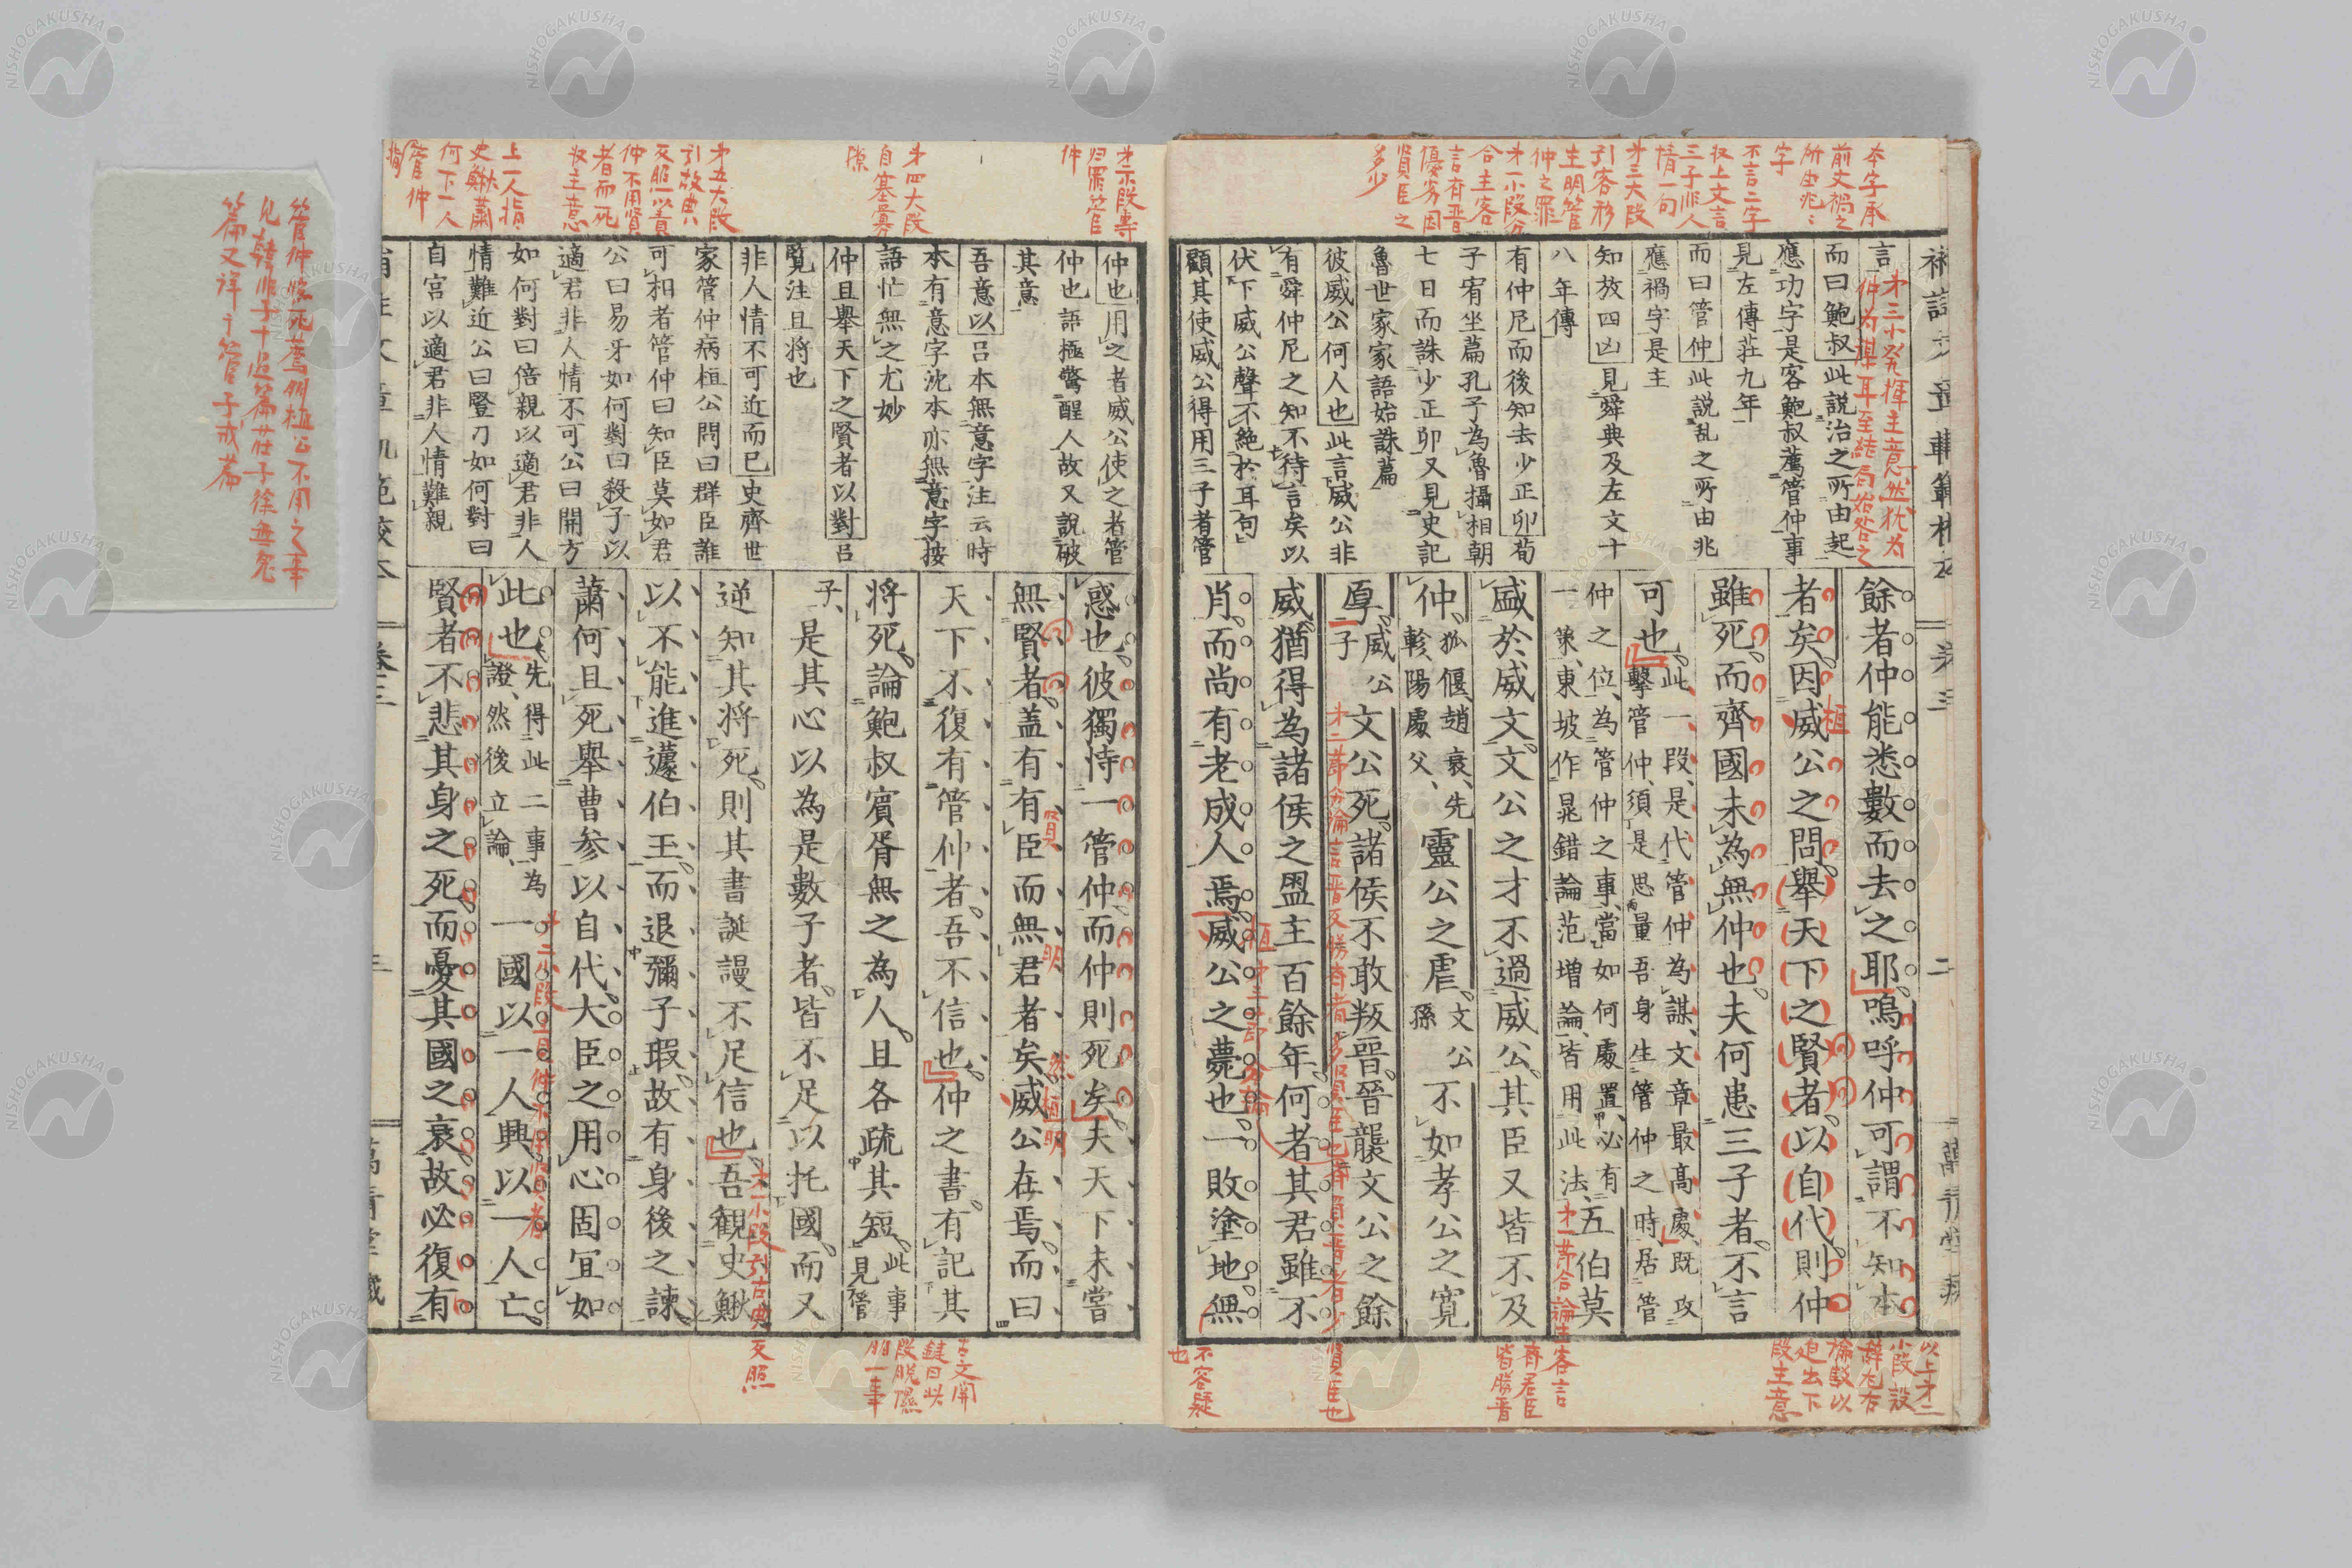 本字承
前文禍之
所由兆之
字
不言二字
収上文言
三子非人
情一句
才三大段
引客形
主明管
仲之罪
才一小段分
合主客
言齊晋
優劣因
賢臣之
多少
言
而曰鮑叔此説治之所由起
應功字是客鮑叔薦管仲事
見左傳莊九年
而曰管仲此説乱之所由兆
應禍字是主
知放四凶見舜典及左文十
八年傳
有仲尼而後知去少正卯荀
子宥坐篇孔子為魯攝相朝
七日而誅少正卯又見史記
魯世家家語始誅篇
彼威公何人也此言威公非
有舜仲尼之知不待言矣以
伏下威公聲不絶於耳句
顧其使威公得用三子者管
才三小発揮主意然犹为
仲为謀耳至結局始咎之
餘者仲能悉數而去之耶嗚呼仲可謂不知本
者矣因威公之問舉天下之賢者以自代則仲
雖死而齊國未為無仲也夫何患三子者不言
可也此一段是代管仲為謀文章最高處既攻
擊管仲須是思量吾身生管仲之時居管
仲之位為管仲之事當如何處置必有
一策東坡作晁錯論范增論皆用此法五伯莫
盛於威文文公之才不過威公其臣又皆不及
仲狐偃趙衰先
軫陽處父靈公之虐文公
孫不如孝公之寛
厚威公
子文公死諸侯不敢叛晉晉襲文公之餘
威猶得為諸侯之盟主百餘年何者其君雖不
肖而尚有老成人焉威公之薨也一敗塗地無
桓
桓
以上才二
小段設
辭左右
論駁以
迫出下
段主意
才一節合論主客言
齊君臣
皆勝晋
賢臣也
不容疑
也
才二小段專
归罪管
仲
才四大段
自基墓
才五大段
引故典
反照以責
仲不用賢
者而死
収主意
上一人指
史鰌蕭
何下一人
指管仲
仲也用之者威公使之者管
仲也語極警醒人故又說破
其意
吾意以呂本無意字注云時
本有意字沈本亦無意字按
語忙無之尤妙
仲且舉天下之賢者以對呂
覧注且將也
非人情不可近而已史齊世
家管仲病桓公問曰群臣誰
可相者管仲曰知臣莫如君
公曰易牙如何對曰殺子以
適君非人情不可公曰開方
如何對曰倍親以適君非人
情難近公曰豎刀如何對曰
自宮以適君非人情難親
惑也彼獨恃一管仲而仲則死矣夫天下未嘗
無賢者盖有有臣而無君者矣威公在焉而曰
天下不復有管仲者吾不信也仲之書有記其
將死論鮑叔賓胥無之為人且各疏其短此事
見管
子是其心以為是數子者皆不足以托國而又
逆知其將死則其書誕謾不足信也吾観史鰌
以不能進蘧伯玉而退彌子瑕故有身後之諫
蕭何且死舉曹参以自代大臣之用心固宜如
此也先得此二事為
證然後立論一國以一人興以一人亡
賢者不悲其身之死而憂其國之衰故必復有
賢
明
然桓明
才一小段引古典反照
才二小段責仲不用賢者
古文開
鍵曰此
段脱
胎一事
管仲將死薦桓公不用之事
見韓非子十過篇荘子徐無鬼
篇又詳于管子戒篇